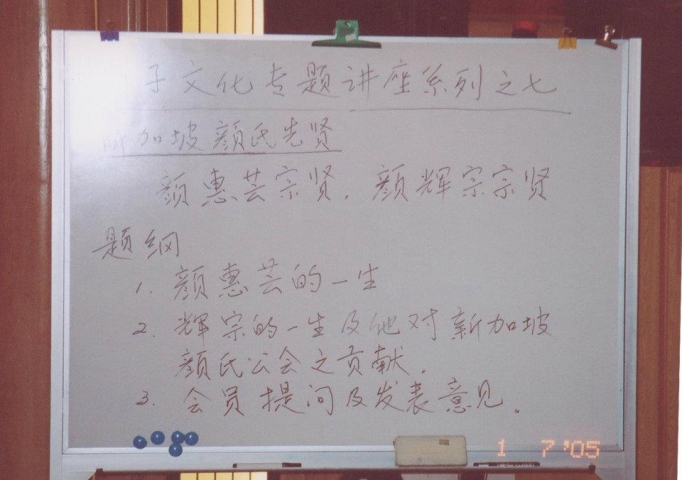 子文化专题讲座系列之七
加坡颜氏先贤
颜惠芸宗贤，颜辉宗宗贤
题纲
1. 颜惠芸的一生
2. 辉宗的一生及他对新加坡
颜氏公会之贡献．
3. 会员提问及发表意见．
1 7 '05